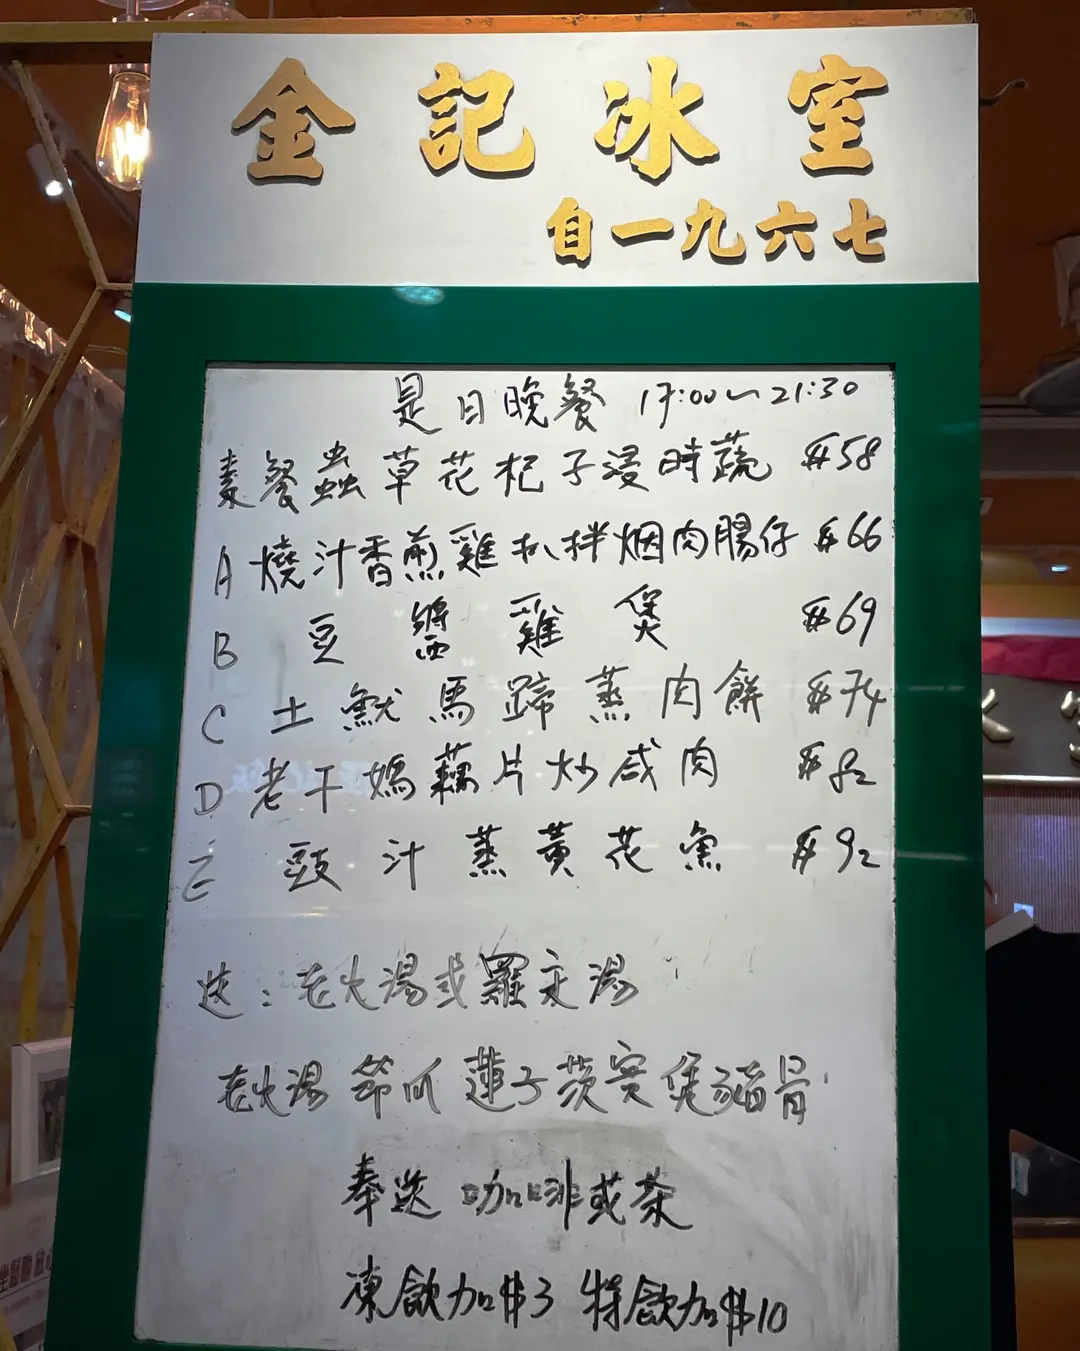 金記冰室
自一九六七
是日晚餐 17:00~21:30
素餐蟲草花杞子浸時蔬 $58
A 燒汁香煎雞扒拌烟肉腸仔 $66
B 豆醬雞煲 $69
C 土魷馬蹄蒸肉餅 $74
D 老干媽藕片炒咸肉 $82
E 豉汁蒸黃花魚 $92
送：老火湯或羅宋湯
老火湯 節瓜蓮子茨實煲豬骨
奉送 咖啡或茶
凍飲加$3 特飲加$10